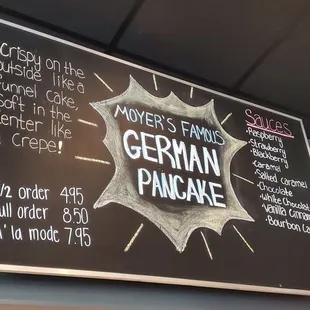 Crispy on the
outside like a
funnel cake,
Soft in the
center like
a Crepe!
1/2 order 4.95
full order 8.50
a' la mode 7.95
MOYER'S FAMOUS
GERMAN
PANCAKE
Sauces
·Raspberry
·Strawberry
·Blackberry
·Caramel
·Salted Caramel
·Chocolate
·White Chocolat
·Vanilla Cinnam
·Bourbon Ca